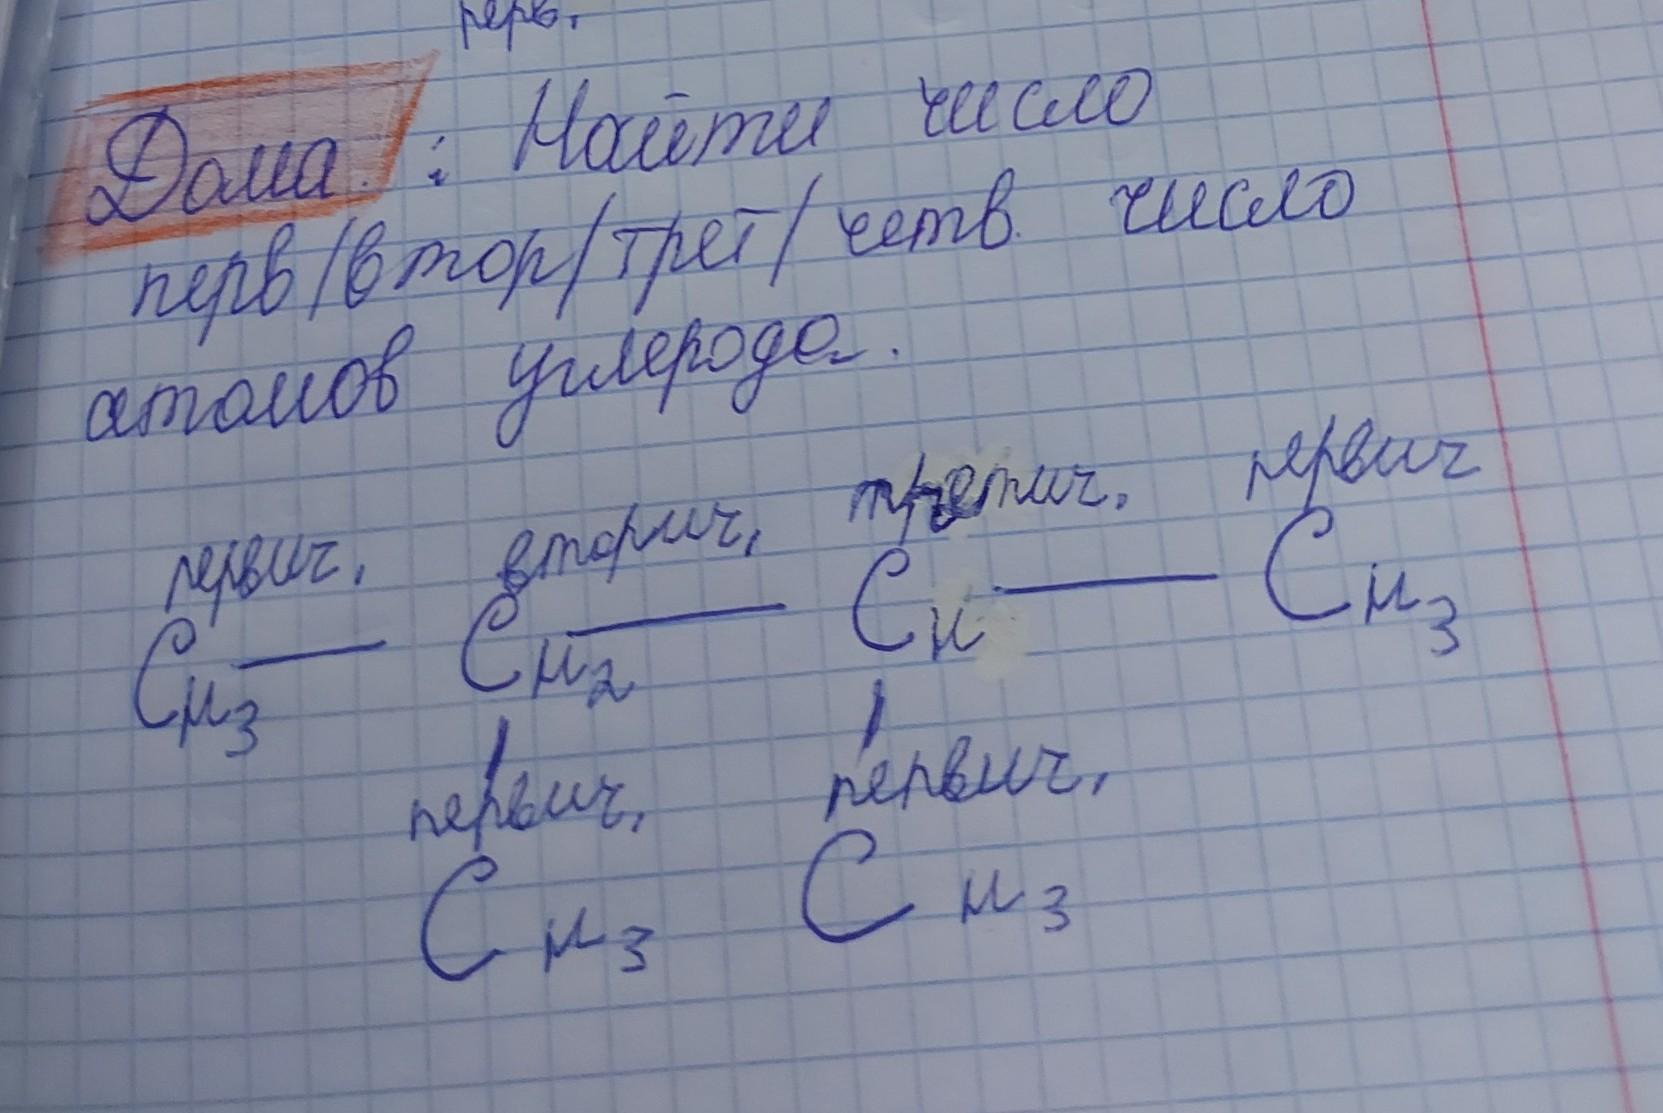 перв.
Дома: Найти число
перв/втор/трет/четв. число
атомов углерода.
первич. вторич. третич. первич
CH3 — CH2 — CH — CH3
первич. первич.
CH3 CH3